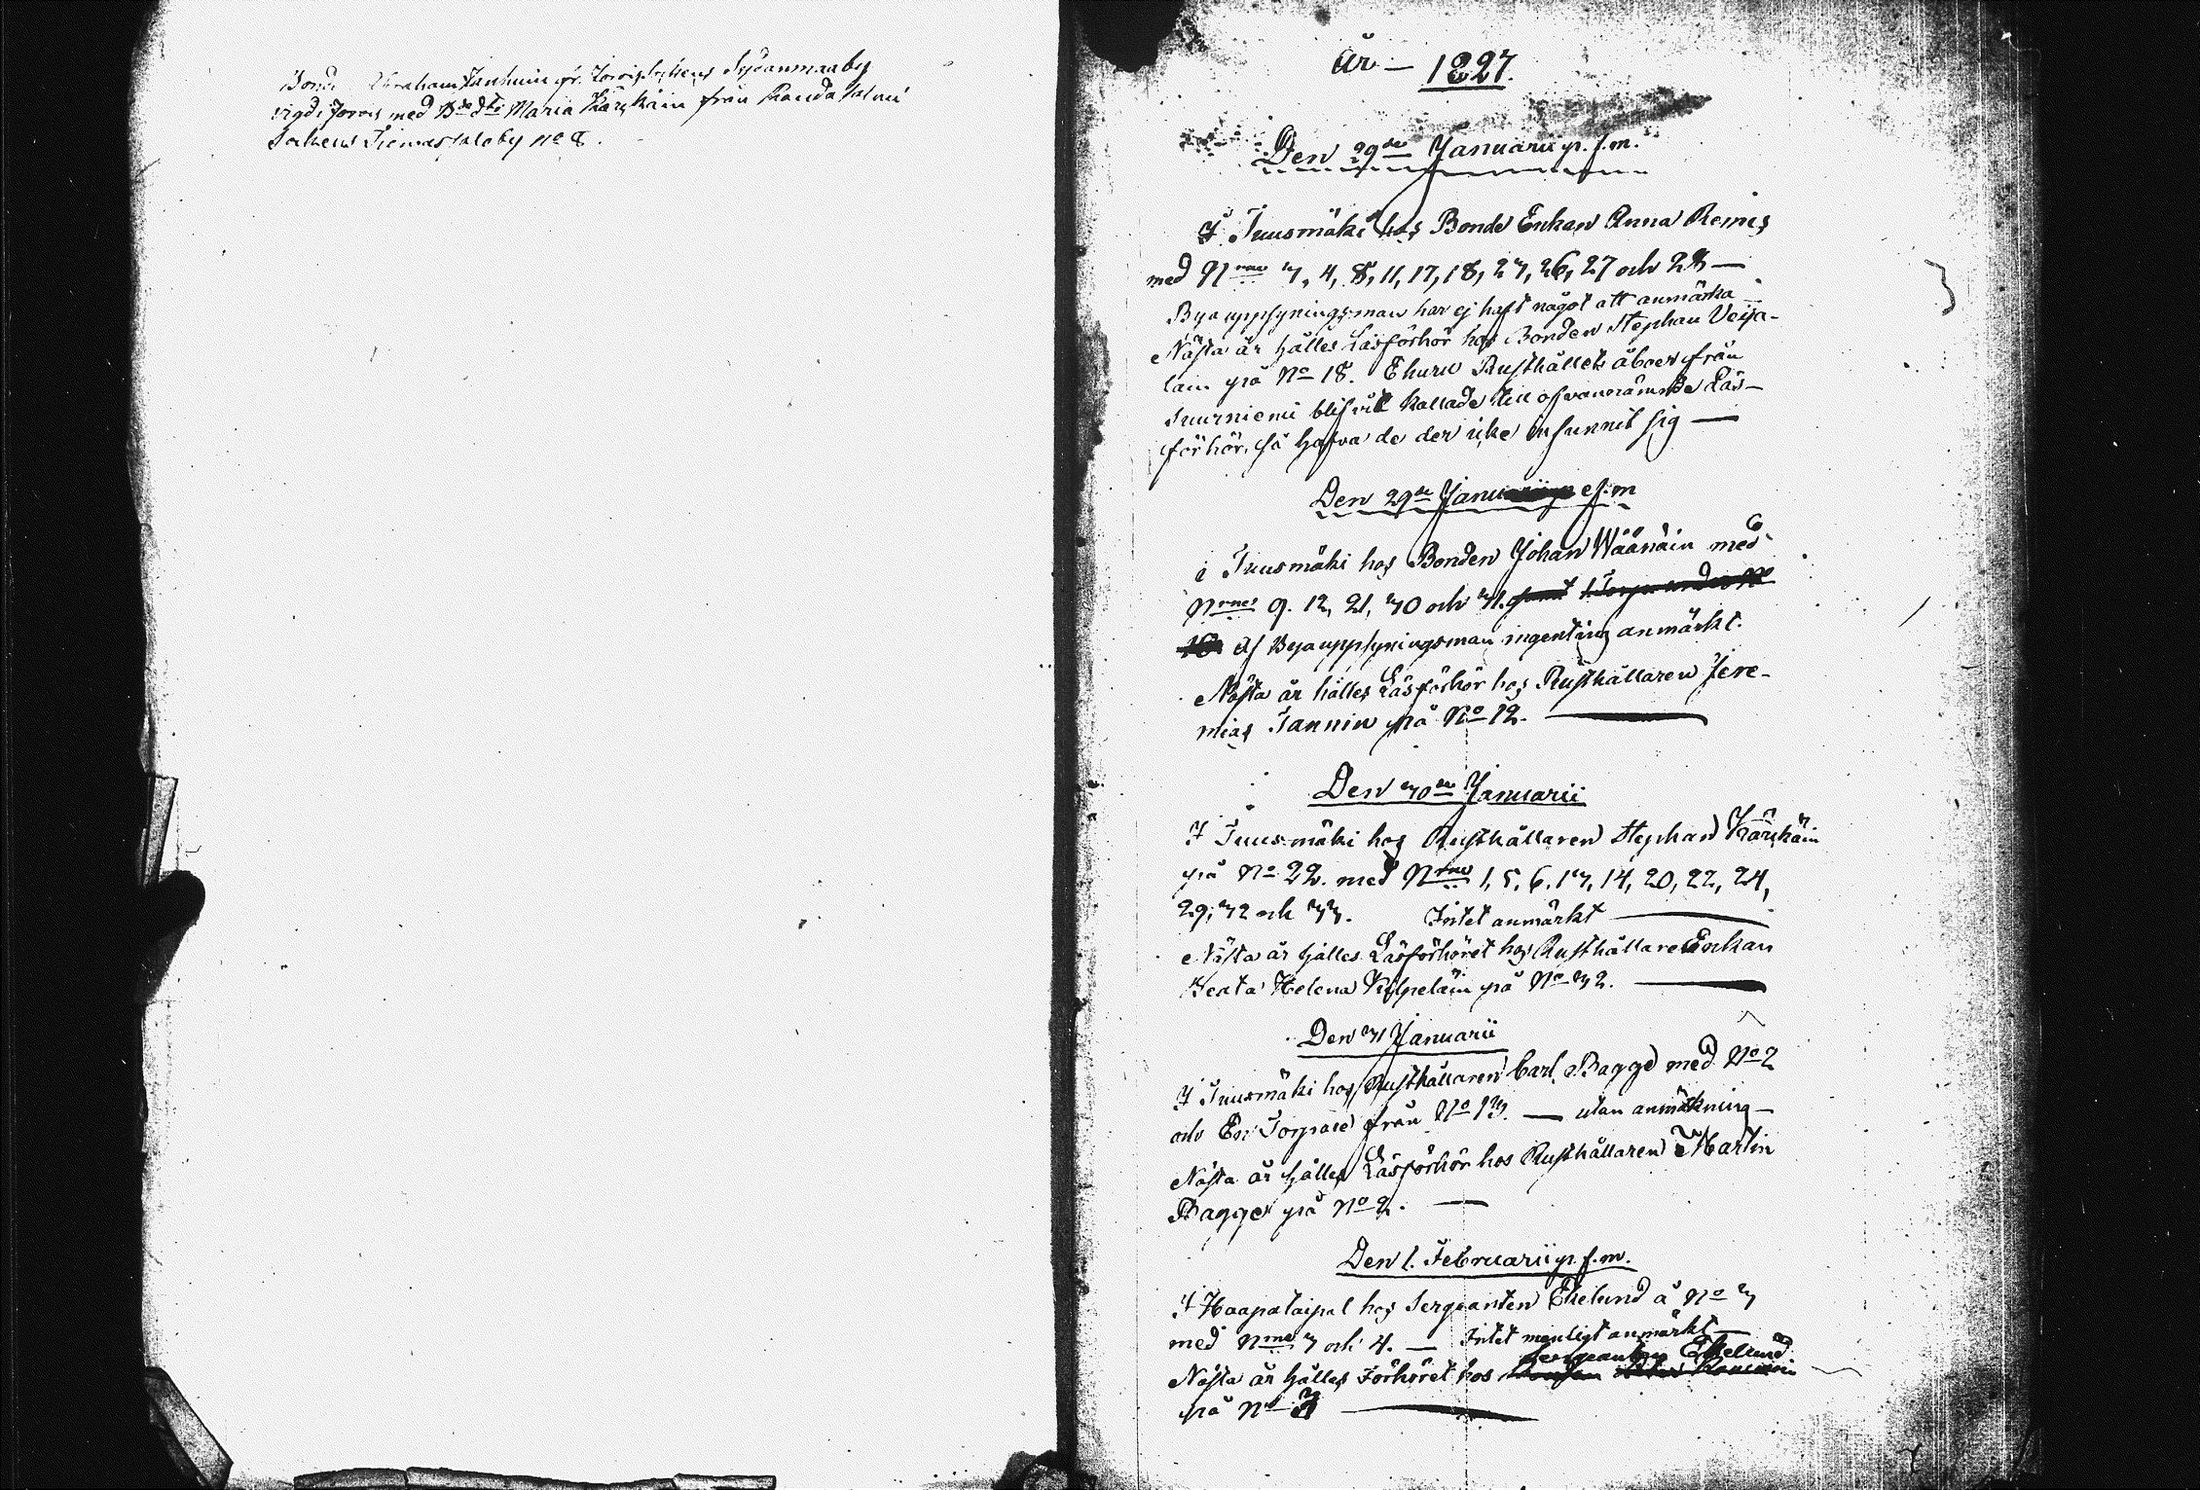 Bond Abraham Tanhuin fr. Jorois Sydänmaaby
vigd i Jorois med Bdedtr Maria Kärkäin från Randasalmi
Sockens by No 8.
År - 1827.
Den 29de Januarii p. f. m.
I Tuusmäki hos Bonde Enkan Anna Reinis
med Nrne 3, 4, 8, 11, 17, 18, 23, 26, 27 och 28 —
Byauppsyningsman har ej haft något att anmärka —
Nästa år hålles Läsförhör hos Bonden Stephan Veija-
lain på No 18. Ehuru Rusthållets åboer från
Suurniemi blifvit kallade till ofvannämnde Läs-
förhör, så hafva de der icke infunnit sig —
Den 29de Janu e. f. m
i Tuusmäki hos Bonden Johan Wäänäin med
Nrnes 9. 12, 21, 30 och 31.
af Byauppsyningsman ingenting anmärkt.
Nästa år hålles Läsförhör hos Rusthållaren Jere-
mias Tannin på No 12. —
Den 30de Januarii
I Tuusmäki hos Rusthållaren Stephan Kärkäin
på No 22. med Nrne 1, 5, 6, 13, 14, 20, 22, 24,
29, 32 och 33. Intet anmärkt —
Nästa år hålles Läsförhöret hos Rusthållare Enkan
Beata Helena Kilpeläin på No 32. —
Den 31 Januarii
I Tuusmäki hos Rusthållaren Carl Bagge med No 2
och En Torpare från No 13. — utan anmärkning —
Nästa år hålles Läsförhör hos Rusthållaren Martin
Bagge på No 2. —
Den 1. Februarii p. f. m.
I Haapataipal hos Sergeanten Ekelund å No 3
med Nrne 3 och 4. — Intet menligt anmärkt —
Sergeanten Ekelund
Nästa år hålles Förhöret hos
på No 3 —